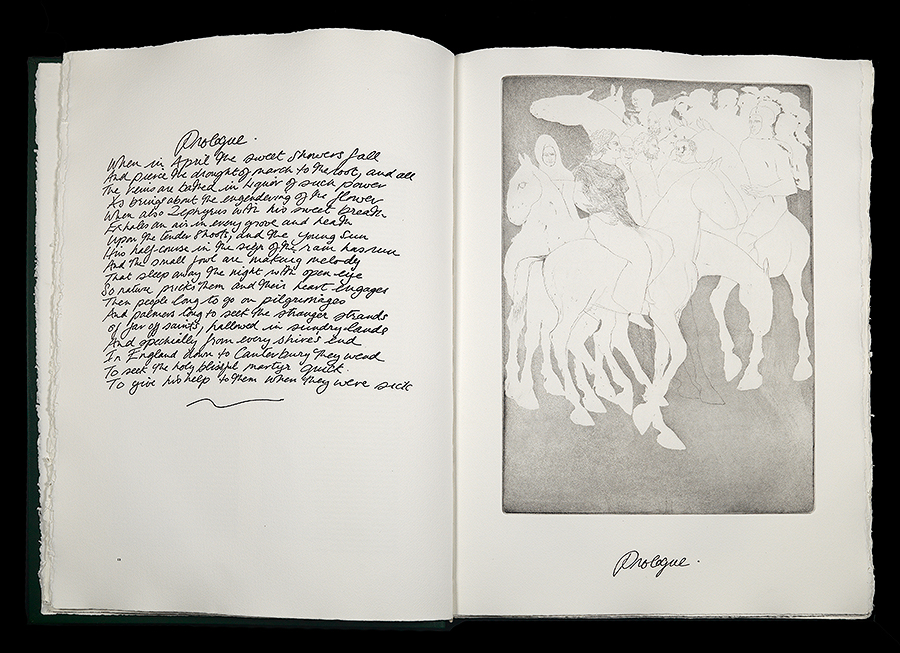 Prologue.
When in April the sweet showers fall
And pierce the drought of march to the root, and all
The veins are bathed in liquor of such power
As brings about the engendering of the flower
When also Zephyrus with his sweet breath
Exhales an air in every grove and heath
Upon the tender shoots, and the young sun
His half-course in the sign of the ram has run
And the small fowl are making melody
That sleep away the night with open eye
So nature pricks them and their heart engages
Then people long to go on pilgrimages
And palmers long to seek the stranger strands
of far off saints, hallowed in sundry lands
And specially from every shires end
In England down to Canterbury they wend
To seek the holy blissful martyr quick
To give his help to them when they were sick
Prologue.